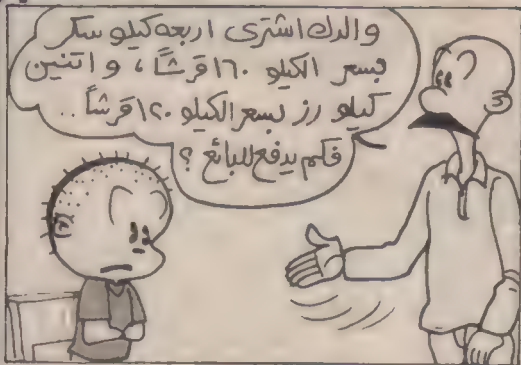 والدك اشترى اربعه كيلو سكر
بسعر الكيلو ١٦٠ قرشاً، و اتنين
كيلو رز بسعر الكيلو ١٢٠ قرشاً ..
فكم يدفع للبائع ؟